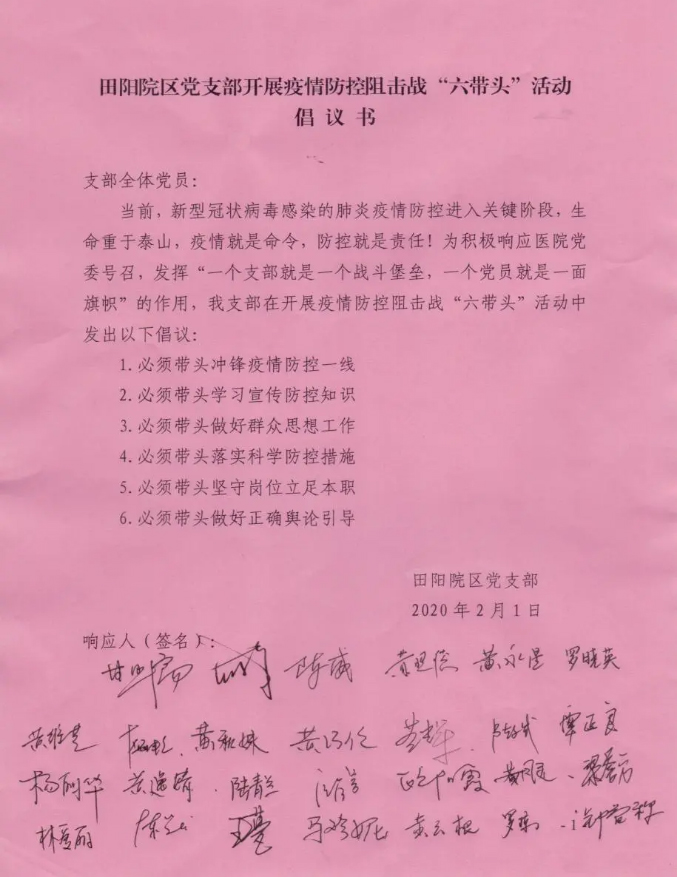 田阳院区党支部开展疫情防控阻击战“六带头”活动
倡议书
支部全体党员：
当前，新型冠状病毒感染的肺炎疫情防控进入关键阶段，生
命重于泰山，疫情就是命令，防控就是责任！为积极响应医院党
委号召，发挥“一个支部就是一个战斗堡垒，一个党员就是一面
旗帜”的作用，我支部在开展疫情防控阻击战“六带头”活动中
发出以下倡议：
1.必须带头冲锋疫情防控一线
2.必须带头学习宣传防控知识
3.必须带头做好群众思想工作
4.必须带头落实科学防控措施
5.必须带头坚守岗位立足本职
6.必须带头做好正确舆论引导
田阳院区党支部
2020年2月1日
响应人（签名）：
陈威 黄永星 罗晓英
覃正良
杨丽华 陆青兰
林爱丽 黄云根